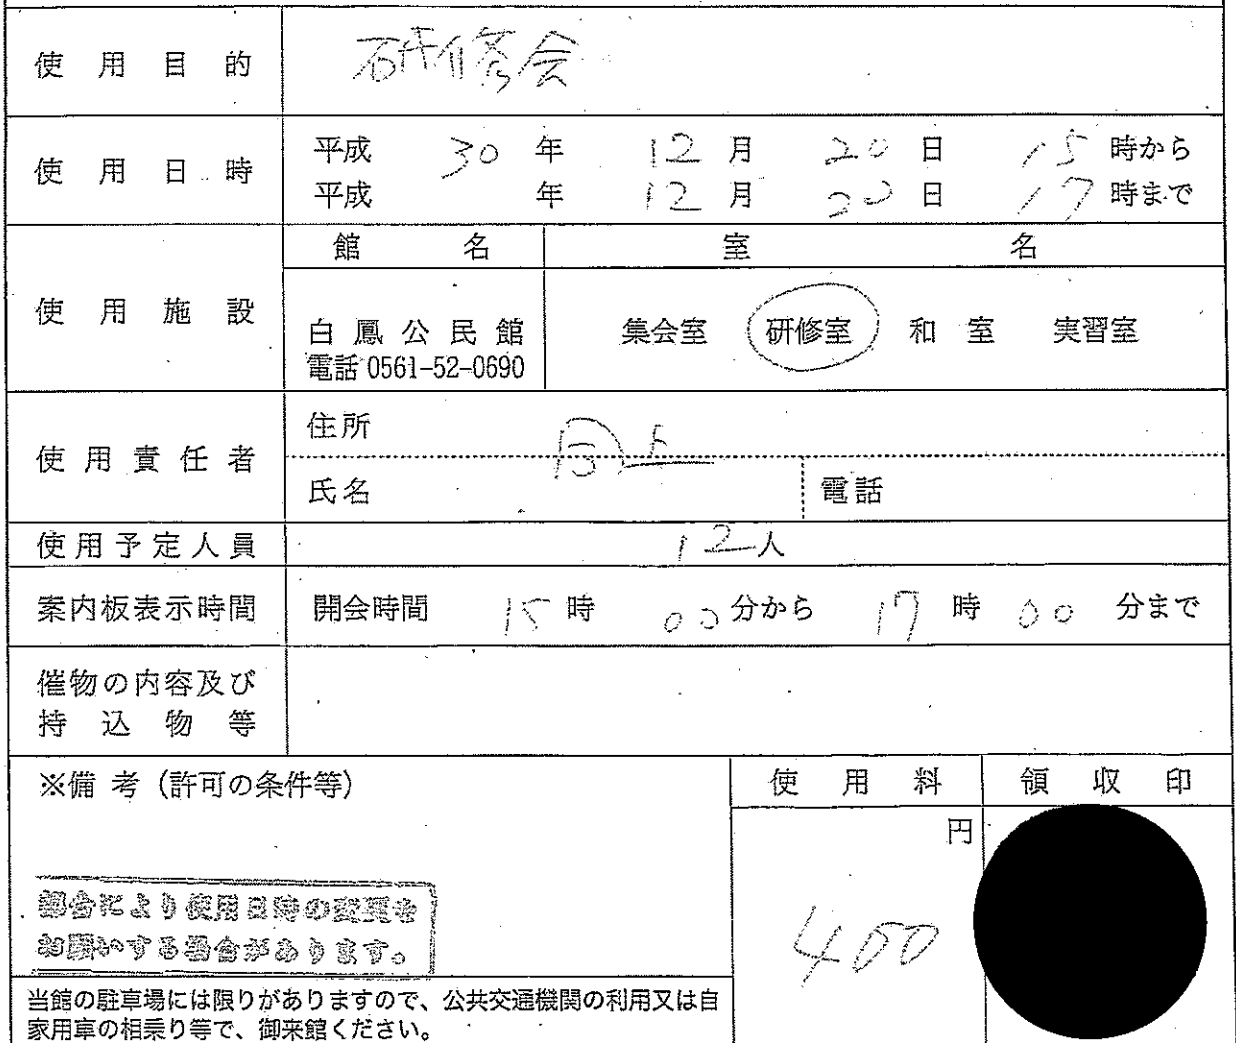 使用目的 研修会
使用日時 平成 30 年 12 月 20 日 15 時から
平成 年 12 月 20 日 17 時まで
使用施設 館名 室名
白鳳公民館 集会室 研修室 和室 実習室
電話 0561-52-0690
使用責任者 住所
同上
氏名 電話
使用予定人員 12人
案内板表示時間 開会時間 15 時 00 分から 17 時 00 分まで
催物の内容及び
持込物等
※備考(許可の条件等) 使用料 領収印
円
400
都合により使用日時の変更を
お願いする場合があります。
当館の駐車場には限りがありますので、公共交通機関の利用又は自
家用車の相乗り等で、御来館ください。